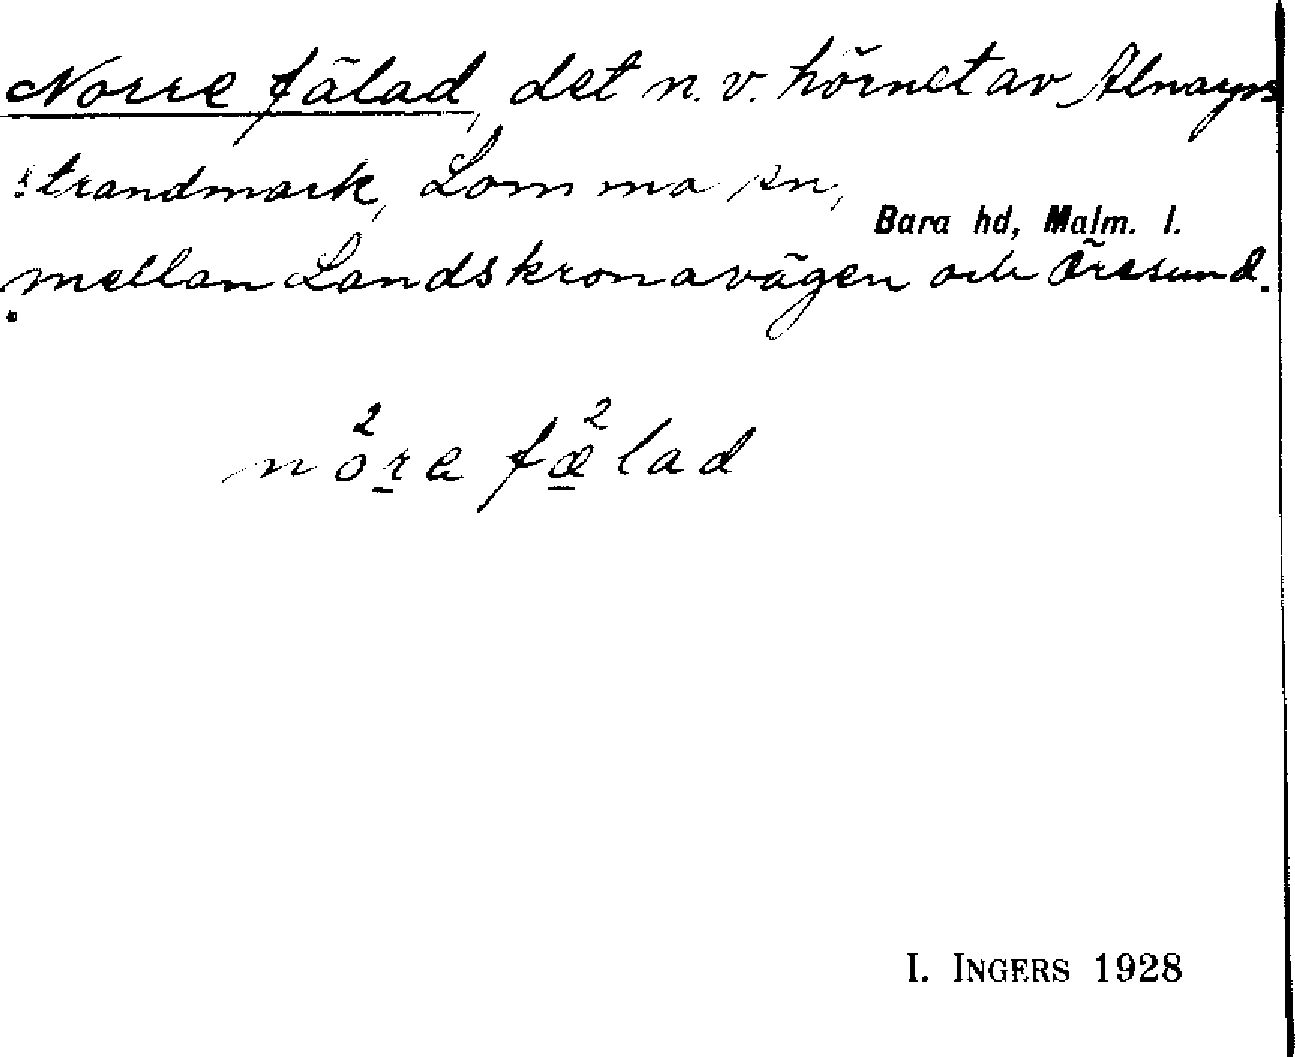 Norre fälad, det n. v. hörnet av Alnarps
strandmark, Lomma sn,
Bara hd, Malm. l.
mellan Landskronavägen och Öresund.
no²re fæ²lad
I. INGERS 1928